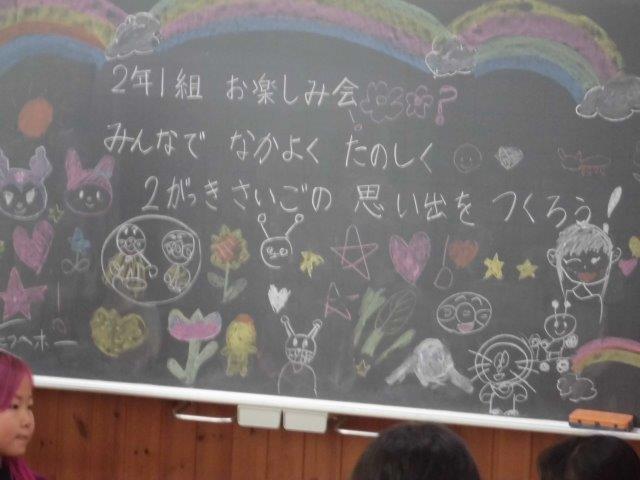 2年1組 お楽しみ会
みんなで なかよく たのしく
2がっきさいごの 思い出を つくろう!